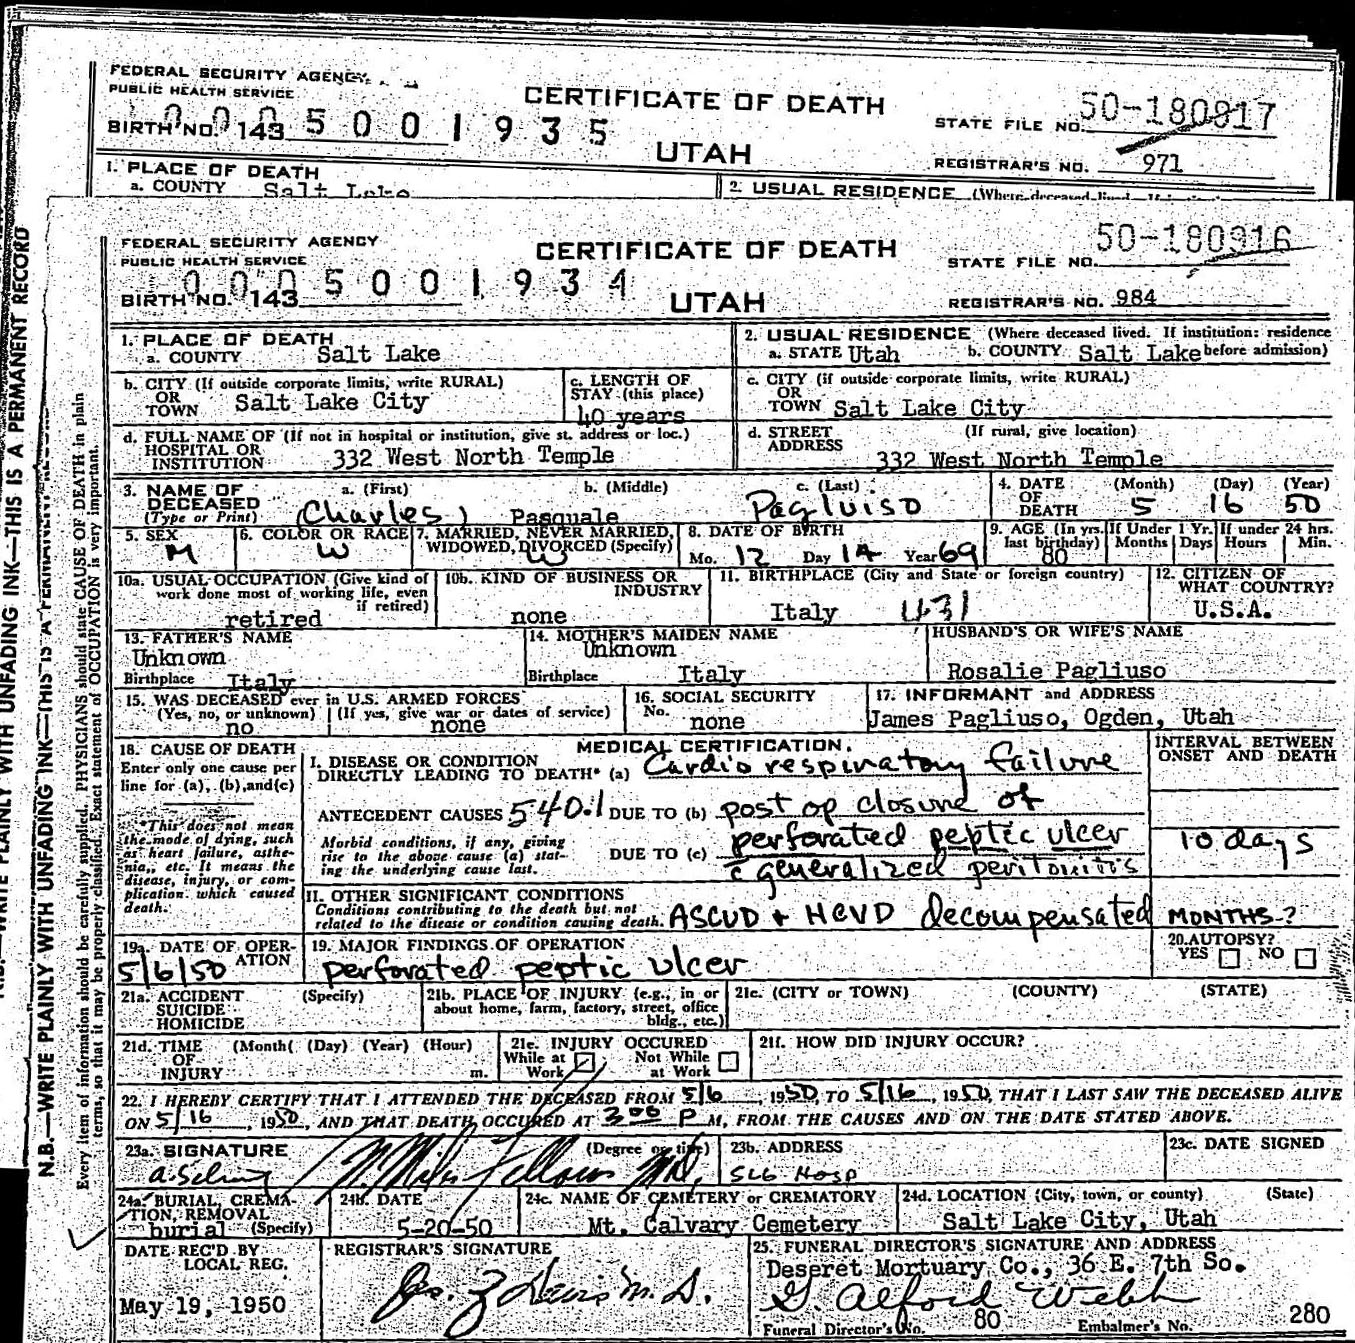 FEDERAL SECURITY AGENCY
PUBLIC HEALTH SERVICE
CERTIFICATE OF DEATH
STATE FILE NO. 50-180817
BIRTH NO. 143
0005001935
UTAH
REGISTRAR'S NO. 971
1. PLACE OF DEATH
a. COUNTY Salt Lake
2. USUAL RESIDENCE (Where deceased lived. If
FEDERAL SECURITY AGENCY
PUBLIC HEALTH SERVICE
CERTIFICATE OF DEATH
STATE FILE NO. 50-180916
BIRTH NO. 143
0005001934
UTAH
REGISTRAR'S NO. 984
1. PLACE OF DEATH
a. COUNTY Salt Lake
2. USUAL RESIDENCE (Where deceased lived. If institution: residence
a. STATE Utah b. COUNTY Salt Lake before admission)
b. CITY (If outside corporate limits, write RURAL)
OR
TOWN Salt Lake City
c. LENGTH OF
STAY (this place)
40 years
c. CITY (if outside corporate limits, write RURAL)
OR
TOWN Salt Lake City
d. FULL NAME OF (If not in hospital or institution, give st. address or loc.)
HOSPITAL OR
INSTITUTION 332 West North Temple
d. STREET (If rural, give location)
ADDRESS
332 West North Temple
3. NAME OF
DECEASED
(Type or Print)
a. (First) b. (Middle) c. (Last)
(Charles) Pasquale Pagluiso
4. DATE (Month) (Day) (Year)
OF
DEATH 5 16 50
5. SEX
M
6. COLOR OR RACE
W
7. MARRIED, NEVER MARRIED,
WIDOWED, DIVORCED (Specify)
W
8. DATE OF BIRTH
Mo. 12 Day 14 Year 69
9. AGE (In yrs. last birthday)
80
If Under 1 Yr. If under 24 hrs.
Months Days Hours Min.
10a. USUAL OCCUPATION (Give kind of
work done most of working life, even
if retired)
retired
10b. KIND OF BUSINESS OR
INDUSTRY
none
11. BIRTHPLACE (City and State or foreign country)
Italy 431
12. CITIZEN OF
WHAT COUNTRY?
U.S.A.
13. FATHER'S NAME
Unknown
Birthplace Italy
14. MOTHER'S MAIDEN NAME
Unknown
Birthplace Italy
HUSBAND'S OR WIFE'S NAME
Rosalie Pagliuso
15. WAS DECEASED ever in U.S. ARMED FORCES
(Yes, no, or unknown) (If yes, give war or dates of service)
no none
16. SOCIAL SECURITY
No. none
17. INFORMANT and ADDRESS
James Pagliuso, Ogden, Utah
18. CAUSE OF DEATH
Enter only one cause per
line for (a), (b), and (c)
*This does not mean
the mode of dying, such
as heart failure, asthe-
nia, etc. It means the
disease, injury, or com-
plication which caused
death.
MEDICAL CERTIFICATION.
I. DISEASE OR CONDITION
DIRECTLY LEADING TO DEATH* (a) Cardio respiratory failure
ANTECEDENT CAUSES 540.1 DUE TO (b) post op closure of
perforated peptic ulcer
Morbid conditions, if any, giving
rise to the above cause (a) stat-
ing the underlying cause last.
DUE TO (c) c̄ generalized peritonitis
INTERVAL BETWEEN
ONSET AND DEATH
10 days
II. OTHER SIGNIFICANT CONDITIONS
Conditions contributing to the death but not
related to the disease or condition causing death. ASCVD + HCVD decompensated MONTHS?
19a. DATE OF OPER-
ATION
5/6/50
19. MAJOR FINDINGS OF OPERATION
perforated peptic ulcer
20. AUTOPSY?
YES NO
21a. ACCIDENT (Specify)
SUICIDE
HOMICIDE
21b. PLACE OF INJURY (e.g., in or
about home, farm, factory, street, office
bldg., etc.)
21c. (CITY or TOWN) (COUNTY) (STATE)
21d. TIME (Month( (Day) (Year) (Hour)
OF
INJURY m.
21e. INJURY OCCURED
While at Work Not While at Work
21f. HOW DID INJURY OCCUR?
22. I HEREBY CERTIFY THAT I ATTENDED THE DECEASED FROM 5/6, 1950, TO 5/16, 1950, THAT I LAST SAW THE DECEASED ALIVE
ON 5/16, 1950, AND THAT DEATH OCCURED AT 3 00 P M, FROM THE CAUSES AND ON THE DATE STATED ABOVE.
23a. SIGNATURE (Degree or title)
Miles Fellows MD
23b. ADDRESS
SLG Hosp
23c. DATE SIGNED
24a. BURIAL, CREMA-
TION, REMOVAL
burial (Specify)
24b. DATE
5-20-50
24c. NAME OF CEMETERY or CREMATORY
Mt. Calvary Cemetery
24d. LOCATION (City, town, or county) (State)
Salt Lake City, Utah
DATE REC'D BY
LOCAL REG.
May 19, 1950
REGISTRAR'S SIGNATURE
25. FUNERAL DIRECTOR'S SIGNATURE AND ADDRESS
Deseret Mortuary Co., 36 E. 7th So.
G. Alford Webb
Funeral Director's No. 80 Embalmer's No. 280
N.B.—WRITE PLAINLY WITH UNFADING INK—THIS IS A PERMANENT RECORD
Every item of information should be carefully supplied. PHYSICIANS should state CAUSE OF DEATH in plain
terms, so that it may be properly classified. Exact statement of OCCUPATION is very important.